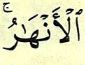 ٱلْأَنْهَٰرُۚ